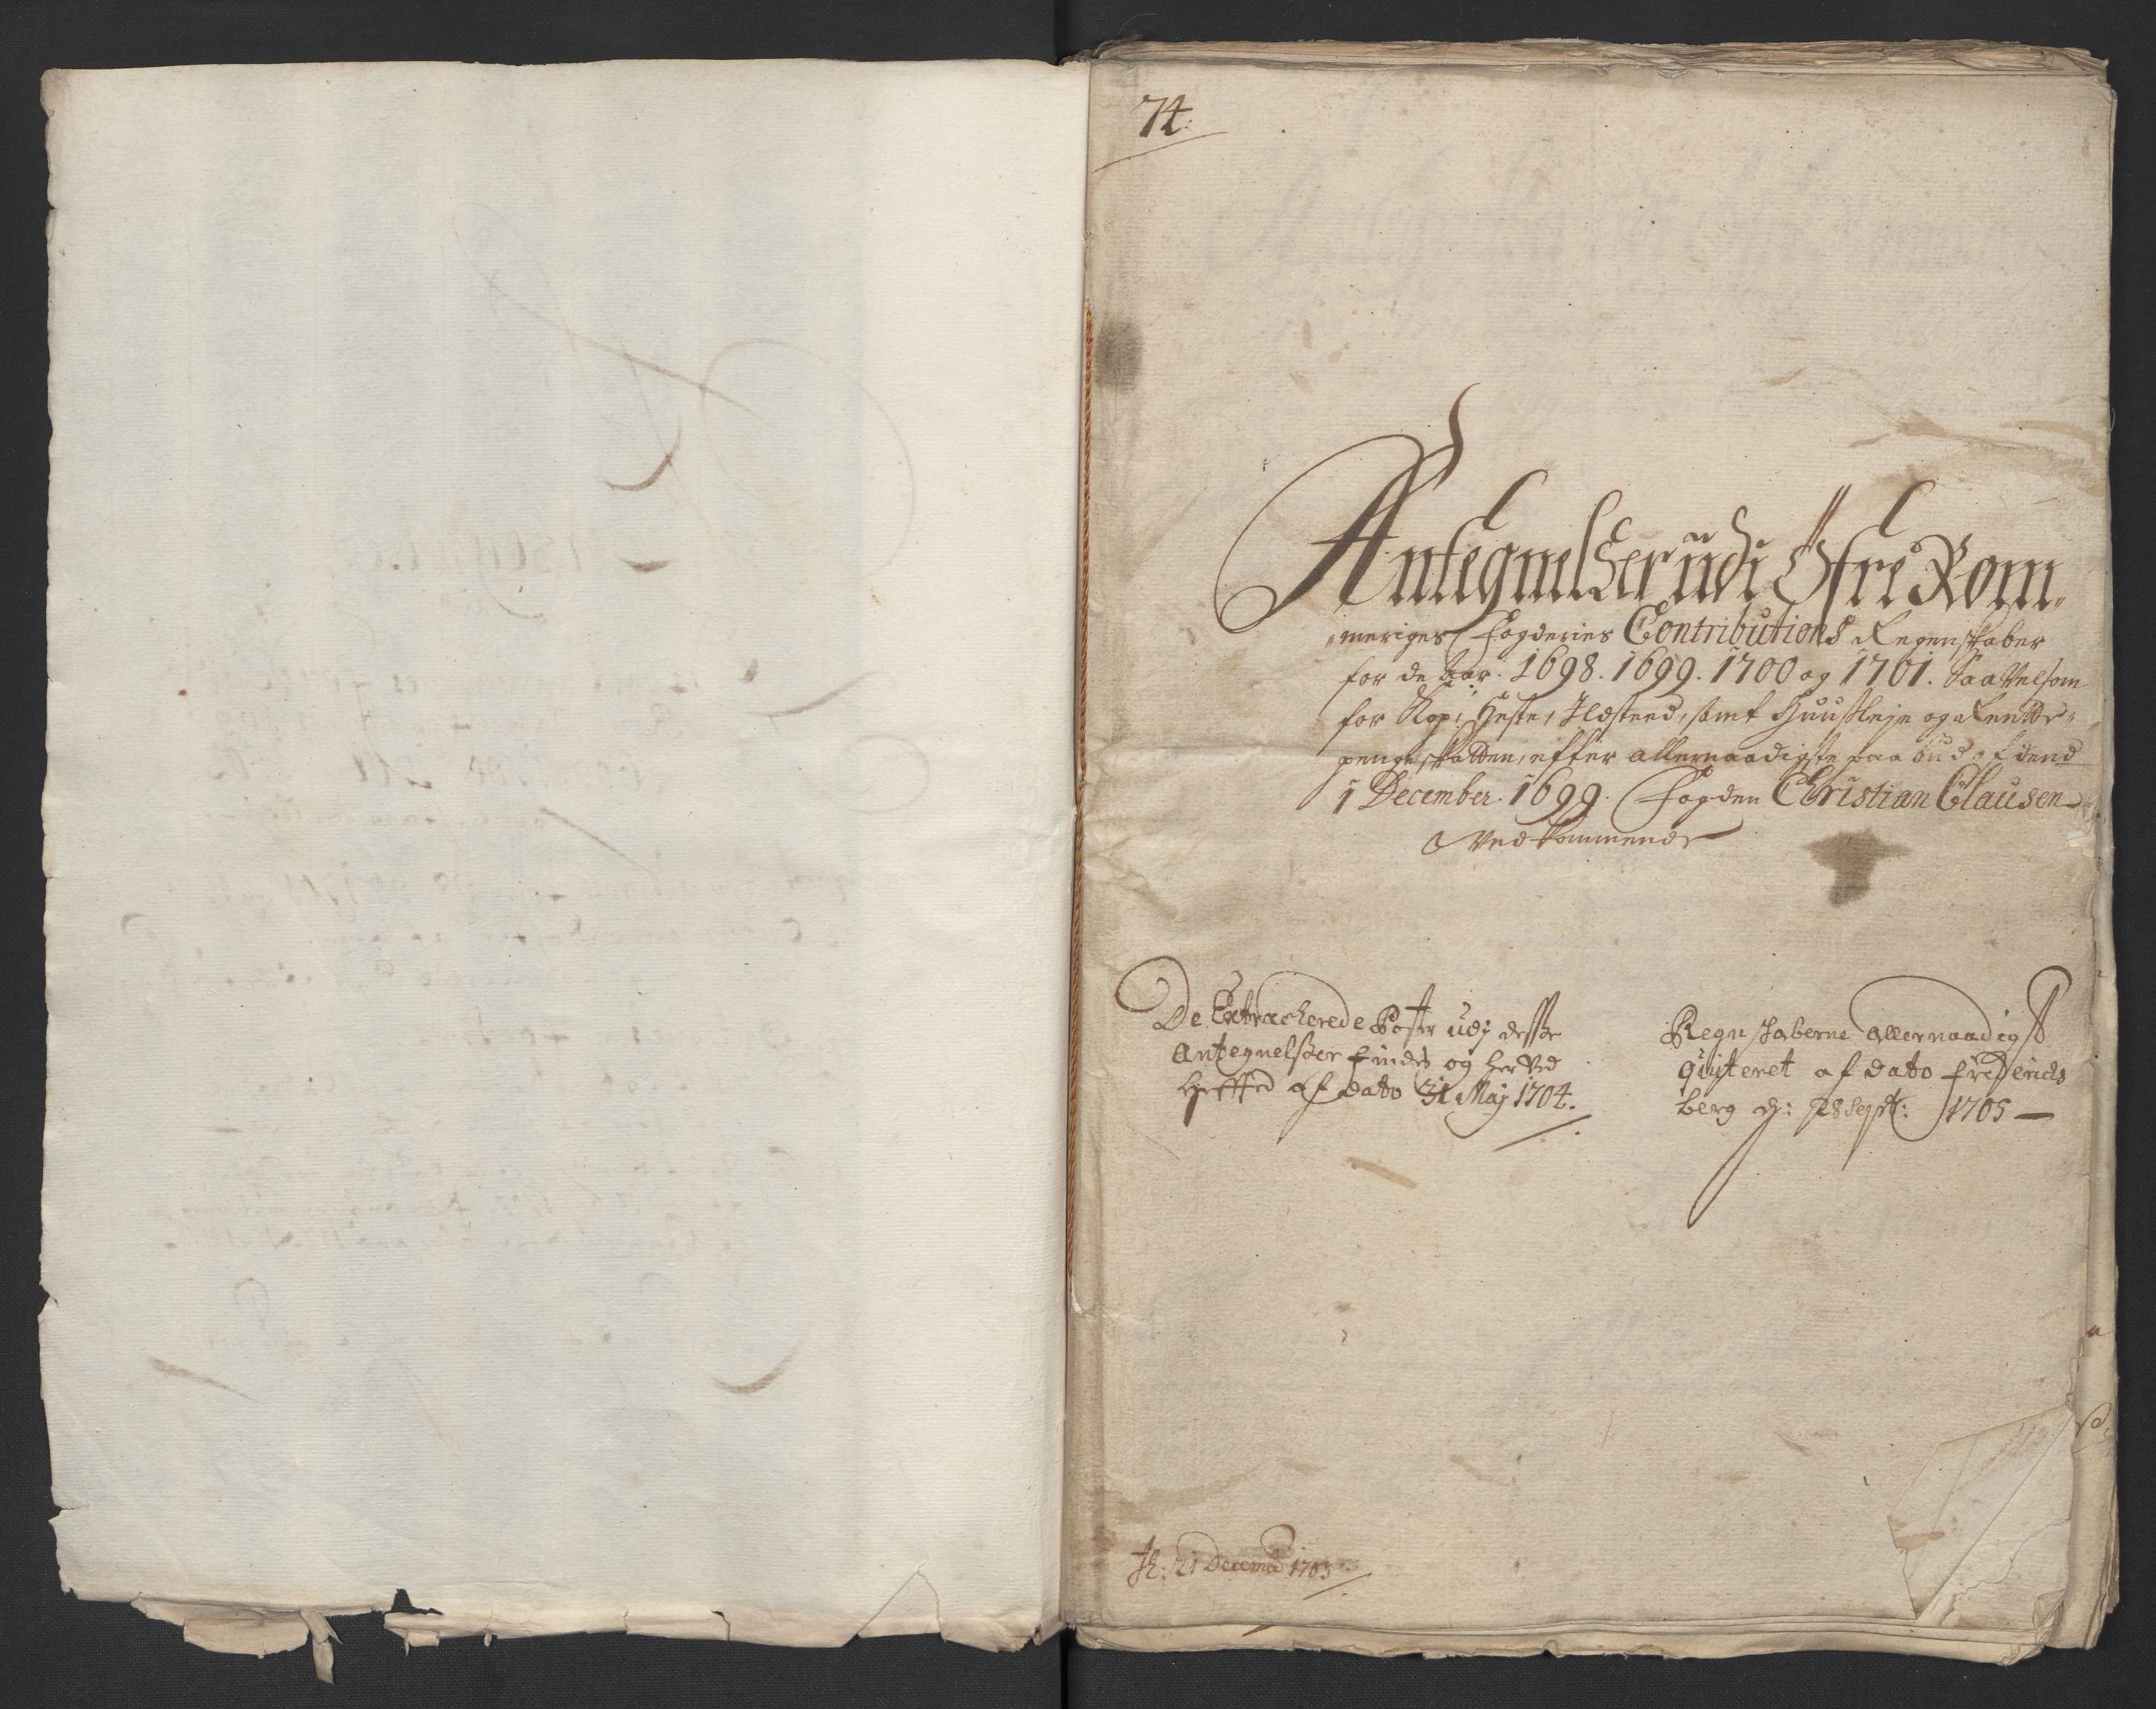 74.
Antegnelser udi Öfre Rom„
„meriges Fogderies Contributions Regenskaber
for de Aar. 1698. 1699. 1700 og 1701. Saavelsom
for Kop, Heste, Ildsteed, samt Huusleje og Rentte„
penge, skatten, effter allernaadigste paabud af dend
1 December. 1699. Fogden Christian Clausen
Vedkommende
De Extracherede Poster udj desse
Antegnelser findes og her ved
heffted af dato 31 Maj 1704.
Regnskaberne allernaadigst
quiteret af dato Friderichs
berg d: 28 Sept: 1705
21 Decemb 1703